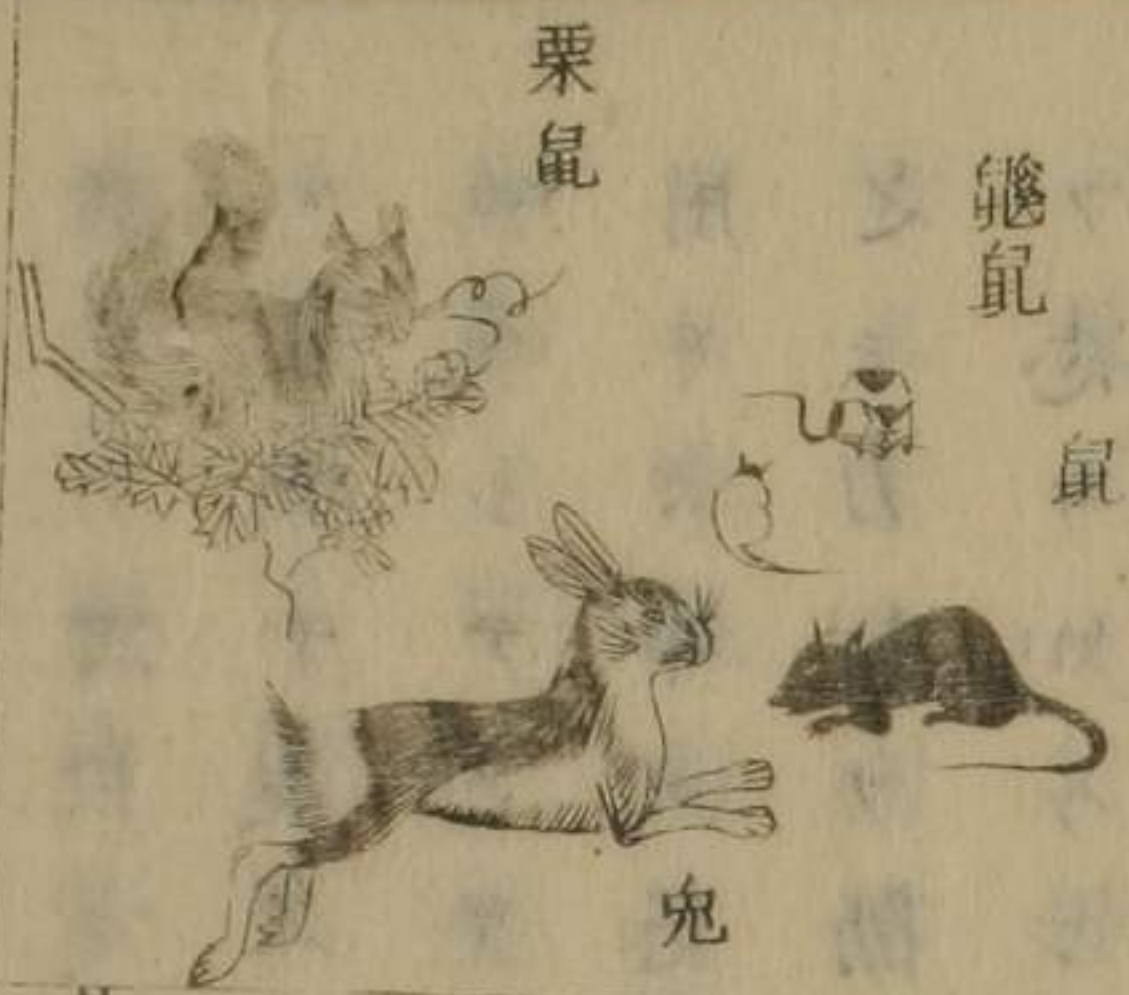 鼷鼠
鼠
栗鼠
兎